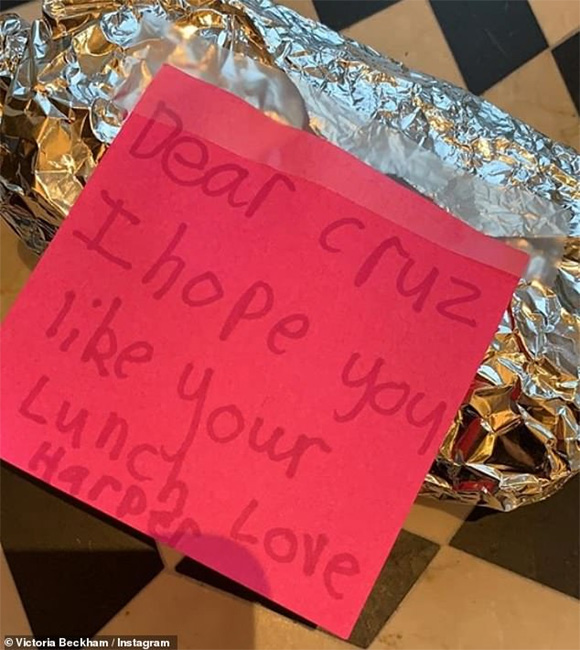 Dear cruz
I hope you
like your
Lunch Love
Harper
© Victoria Beckham / Instagram